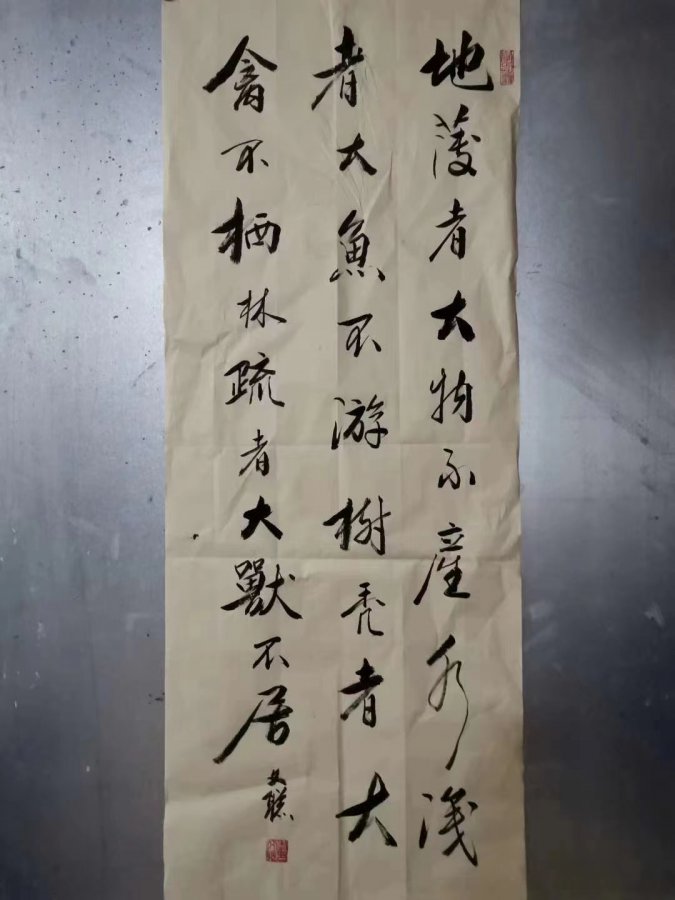 地薄者大物不產水淺
者大魚不游樹禿者大
禽不栖林疏者大獸不居
文聯